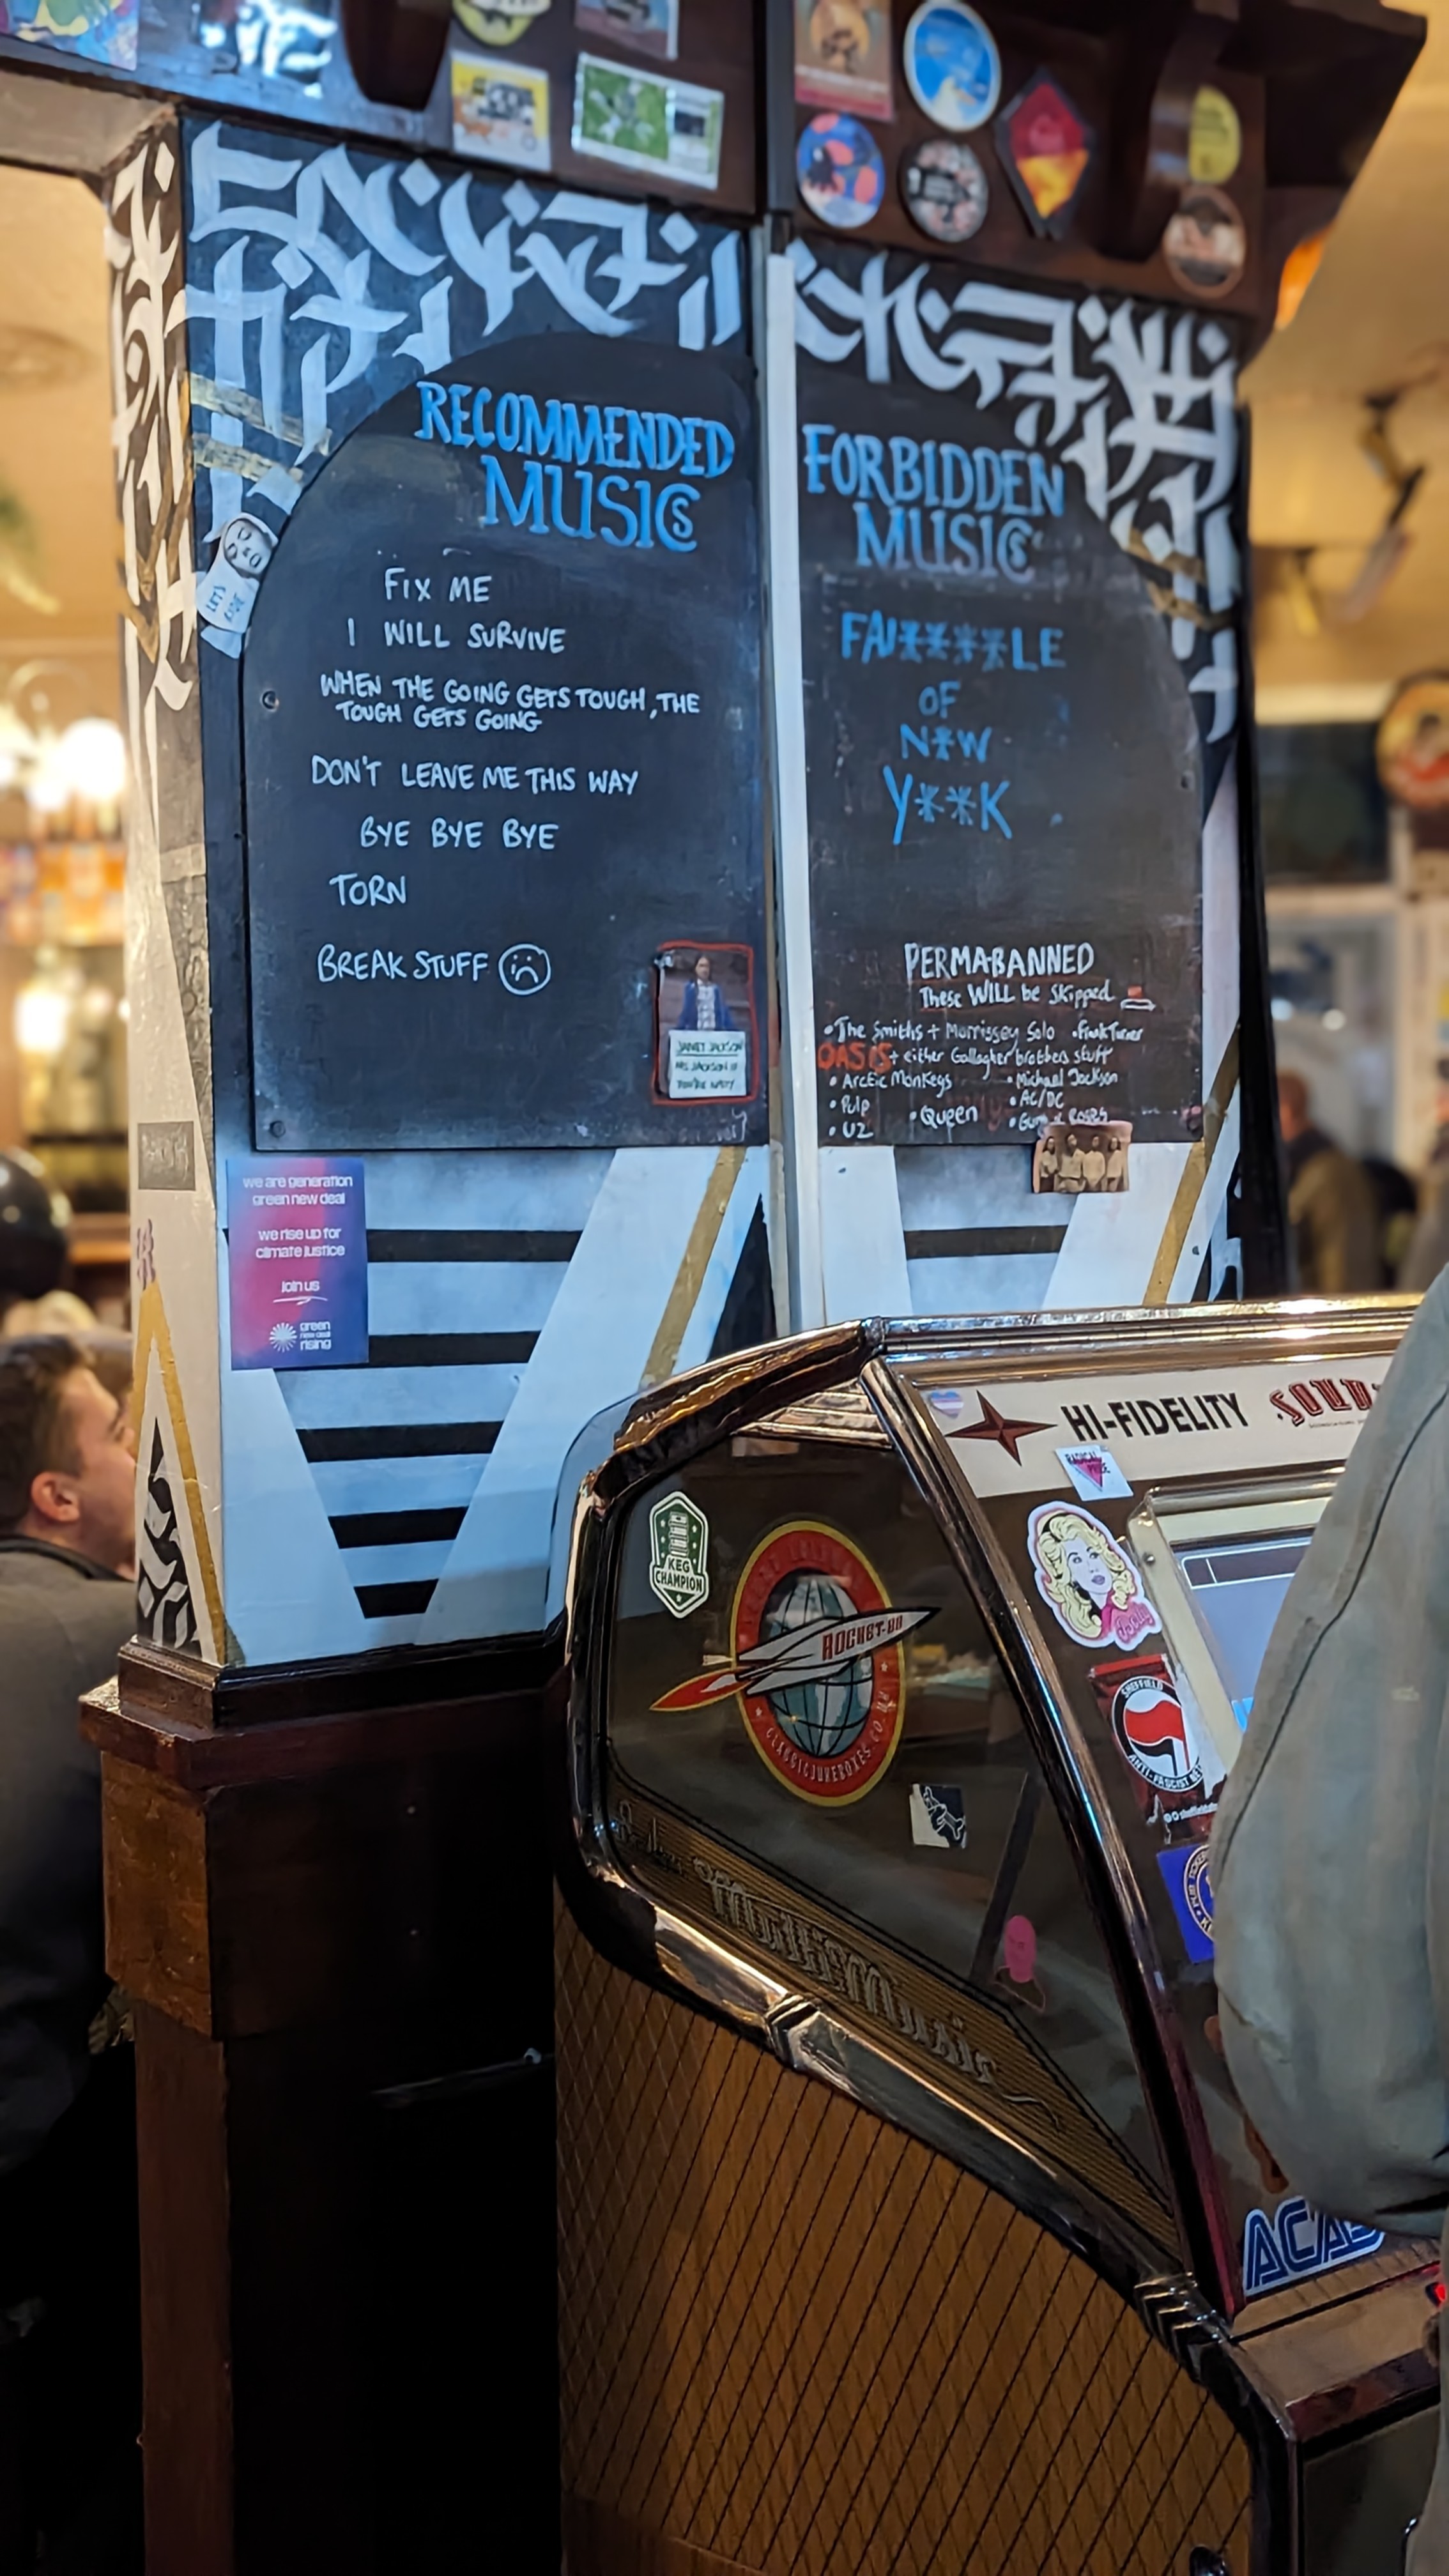 RECOMMENDED
MUSICS
FIX ME
I WILL SURVIVE
WHEN THE GOING GETS TOUGH, THE
TOUGH GETS GOING
DON'T LEAVE ME THIS WAY
BYE BYE BYE
TORN
BREAK STUFF
JANET JACKSON
MS. JACKSON IF
YOU'RE NASTY
LET'S
FORBIDDEN
MUSICS
FAI****LE
OF
N*W
Y**K
PERMA-BANNED
These WILL be Skipped
• The Smiths + Morrissey Solo • Frank Turner
OASIS + either Gallagher brothers stuff
• Arctic Monkeys • Michael Jackson
• Pulp • Queen • AC/DC
• U2 • Guns n' Roses
we are generation
green new deal
we rise up for
climate justice
Join us
green
new deal
rising
HI-FIDELITY
RADICAL
KEG
CHAMPION
ROCKET-88
CLASSICJUKEBOXES.CO.UK
Dolly
SHEFFIELD
ANTI-FASCIST NE
ACAB